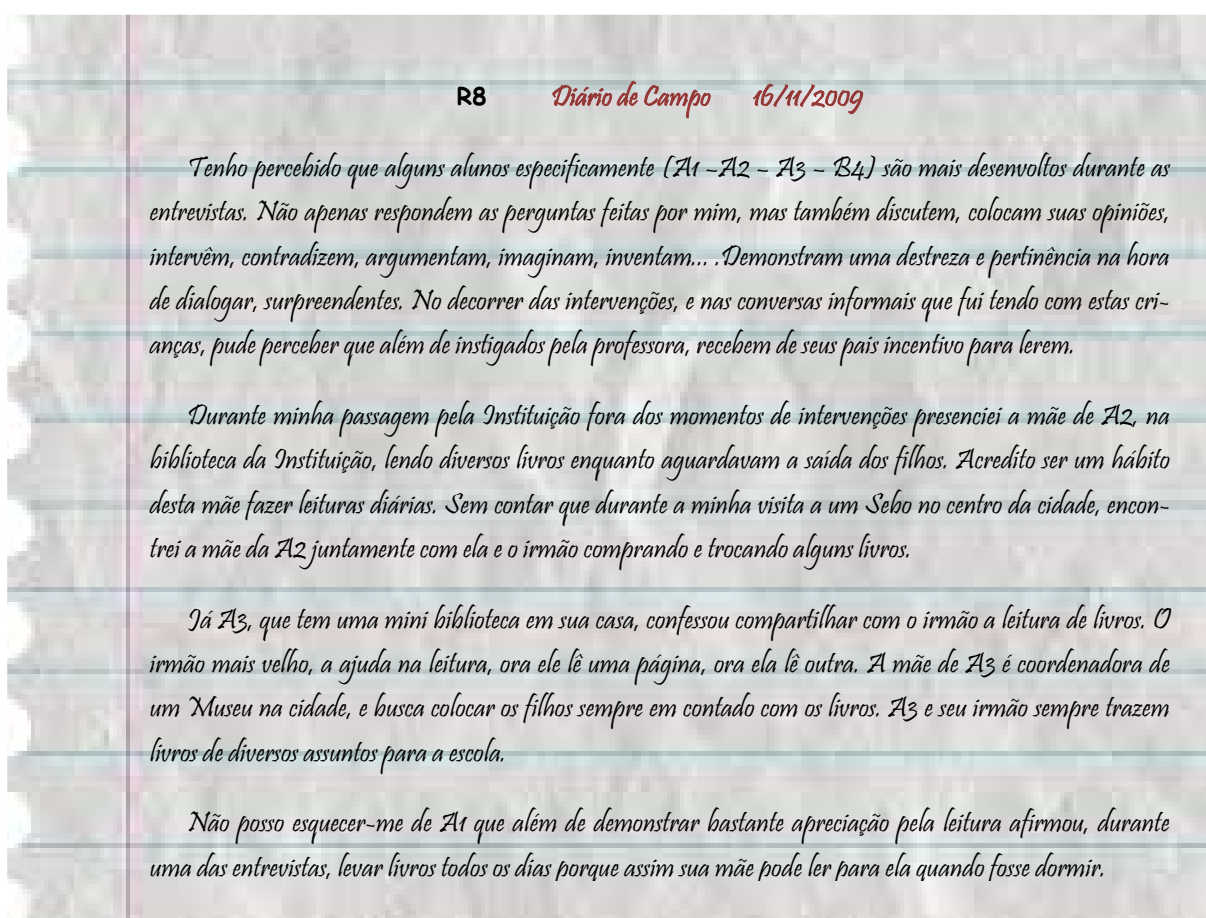 R8 Diário de Campo 16/11/2009
Tenho percebido que alguns alunos especificamente (A1 –A2 – A3 – B4) são mais desenvoltos durante as
entrevistas. Não apenas respondem as perguntas feitas por mim, mas também discutem, colocam suas opiniões,
intervêm, contradizem, argumentam, imaginam, inventam... .Demonstram uma destreza e pertinência na hora
de dialogar, surpreendentes. No decorrer das intervenções, e nas conversas informais que fui tendo com estas cri-
anças, pude perceber que além de instigados pela professora, recebem de seus pais incentivo para lerem.
Durante minha passagem pela Instituição fora dos momentos de intervenções presenciei a mãe de A2, na
biblioteca da Instituição, lendo diversos livros enquanto aguardavam a saída dos filhos. Acredito ser um hábito
desta mãe fazer leituras diárias. Sem contar que durante a minha visita a um Sebo no centro da cidade, encon-
trei a mãe da A2 juntamente com ela e o irmão comprando e trocando alguns livros.
Já A3, que tem uma mini biblioteca em sua casa, confessou compartilhar com o irmão a leitura de livros. O
irmão mais velho, a ajuda na leitura, ora ele lê uma página, ora ela lê outra. A mãe de A3 é coordenadora de
um Museu na cidade, e busca colocar os filhos sempre em contado com os livros. A3 e seu irmão sempre trazem
livros de diversos assuntos para a escola.
Não posso esquecer-me de A1 que além de demonstrar bastante apreciação pela leitura afirmou, durante
uma das entrevistas, levar livros todos os dias porque assim sua mãe pode ler para ela quando fosse dormir.